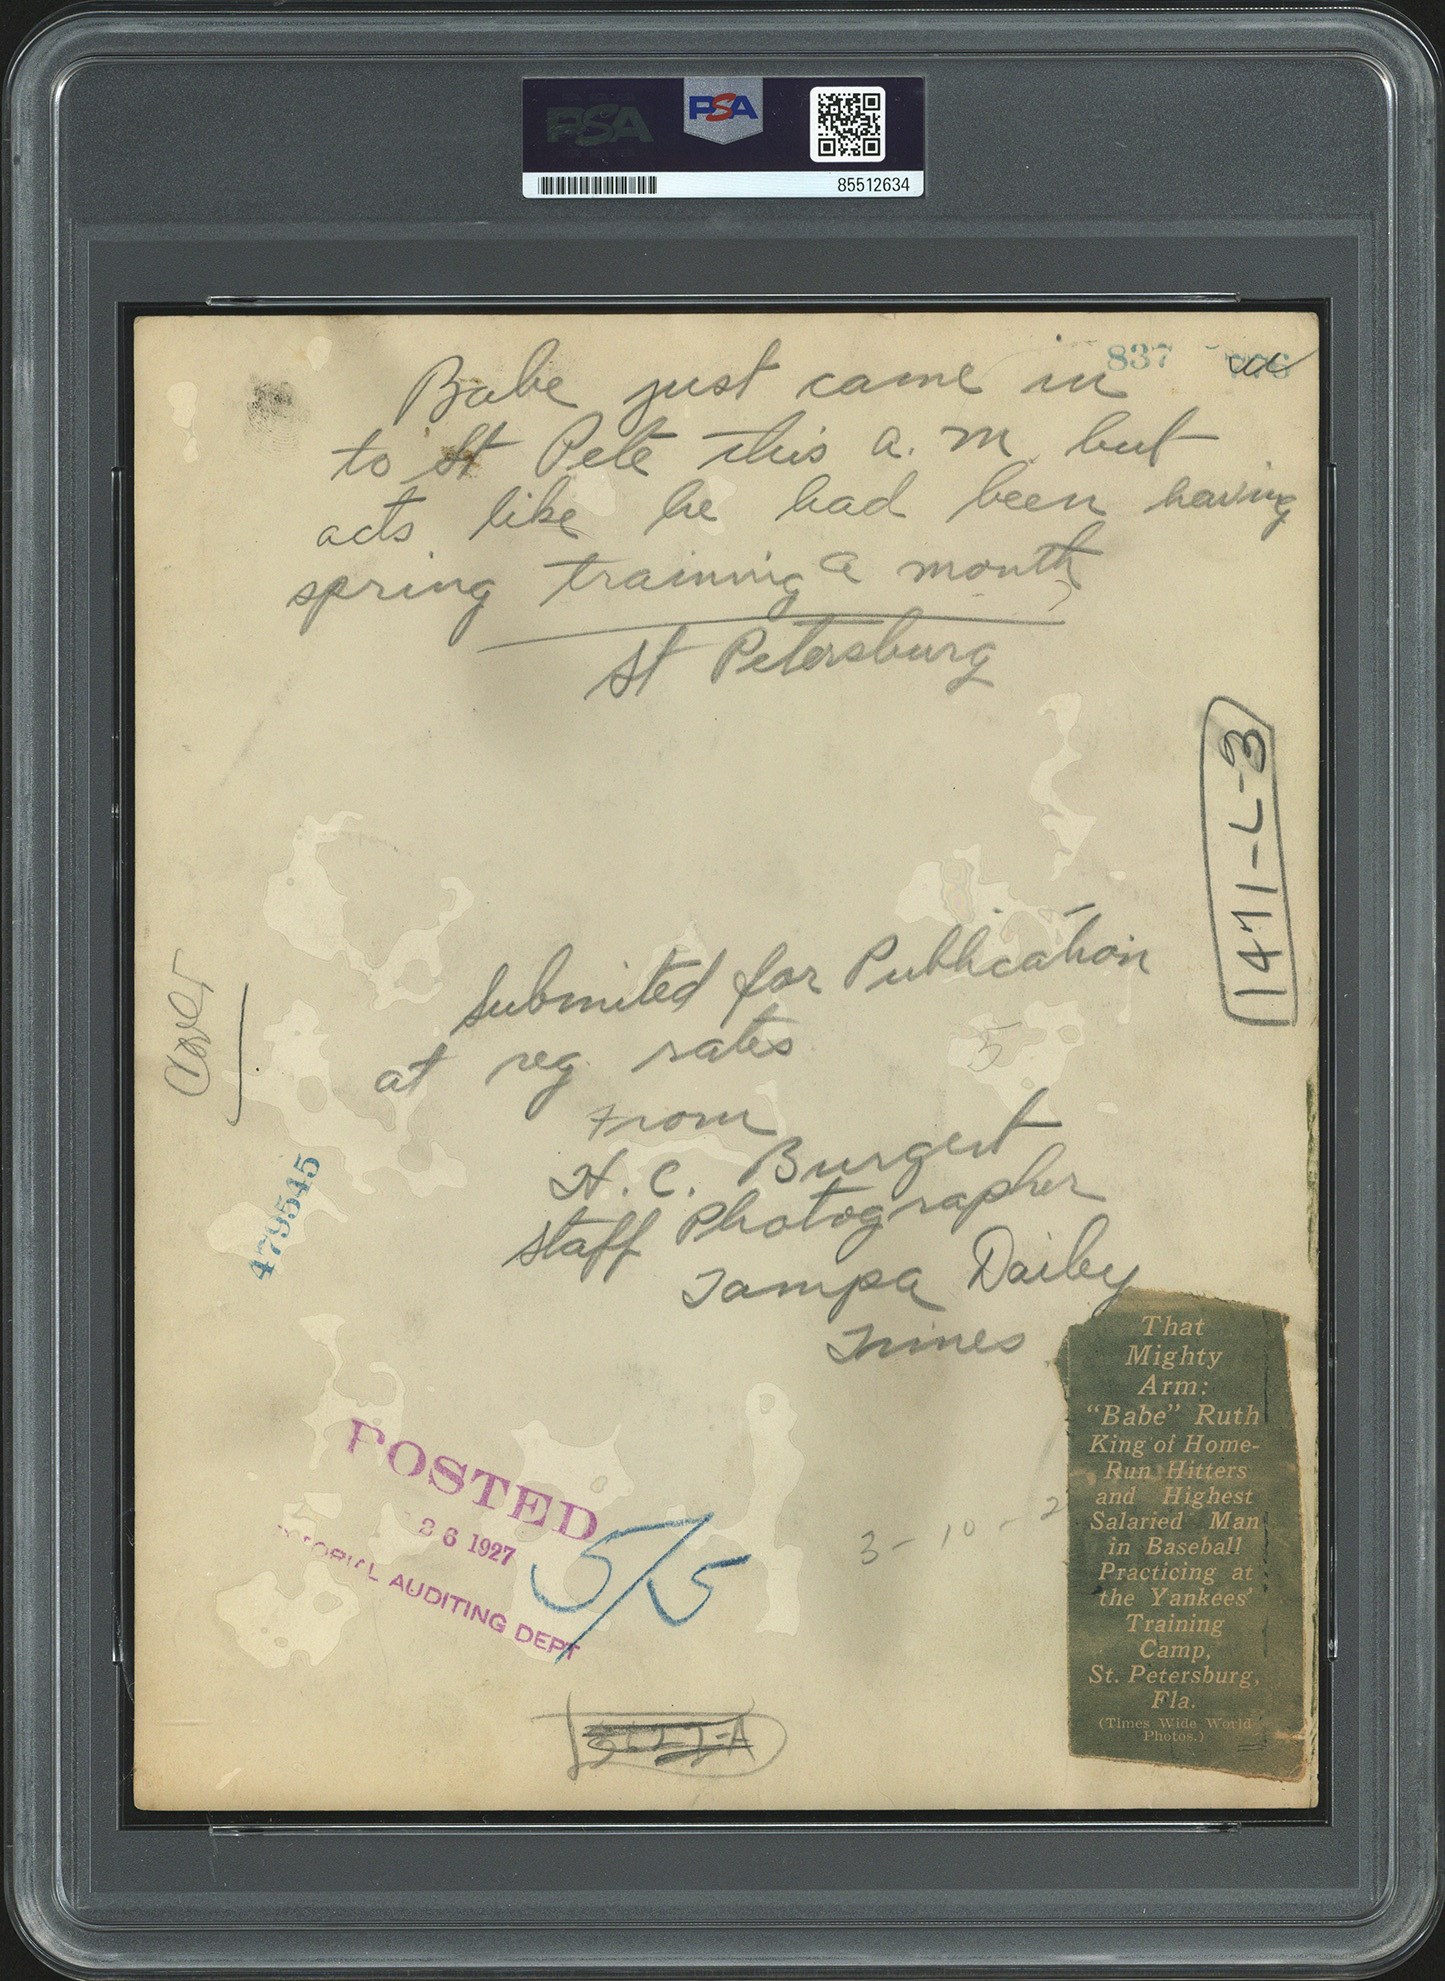 PSA
PSA
85512634
837
Babe just came in
to St Pete this a.m. but
acts like he had been having
spring training a month
St Petersburg
1471-L-3
Submited for Publication
at reg. rates
5
From
H. C. Burgert
Staff Photographer
Tampa Daily
Times
Cover
479545
POSTED
26 1927
AUDITING DEPT
5/5
3-10-2
That
Mighty
Arm:
"Babe" Ruth
King of Home-
Run Hitters
and Highest
Salaried Man
in Baseball
Practicing at
the Yankees'
Training
Camp,
St. Petersburg,
Fla.
(Times Wide World
Photos.)